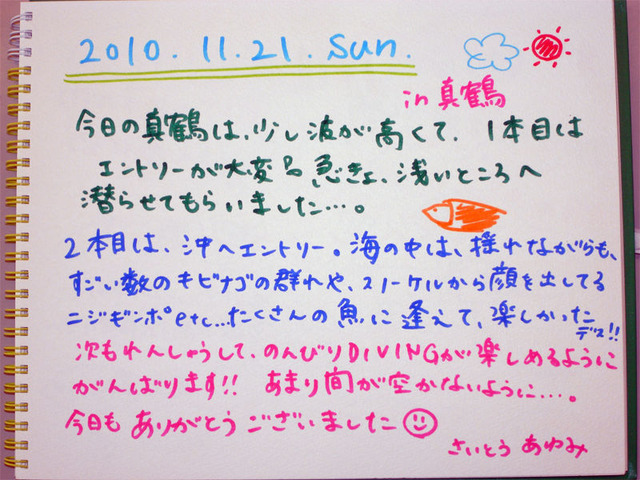 2010.11.21.Sun.
in 真鶴
今日の真鶴は、少し波が高くて、1本目は
エントリーが大変。急きょ、浅いところへ
潜らせてもらいました…。
2本目は、沖へエントリー。海の中は、揺れながらも、
すごい数のキビナゴの群れや、スノーケルから顔を出してる
ニジギンポetc...たくさんの魚に逢えて、楽しかった
デス!!
次もれんしゅうして、のんびりDIVINGが楽しめるように
がんばります!! あまり間が空かないように…。
今日もありがとうございました
さいとう あゆみ